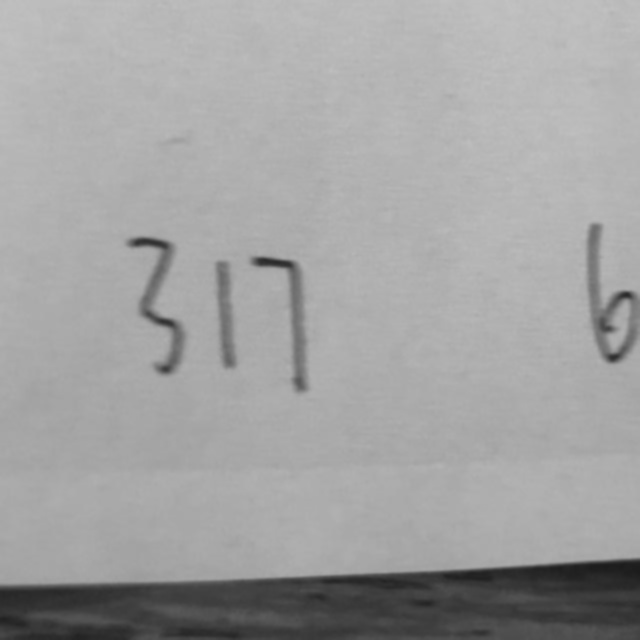 317 6